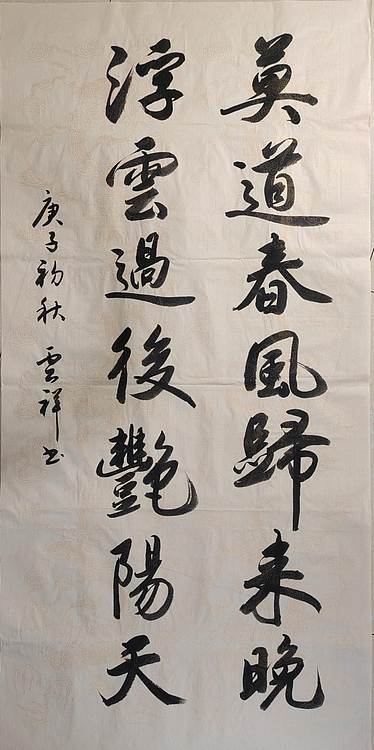 莫道春風歸来晚
浮雲過後艷陽天
庚子初秋 雲祥书